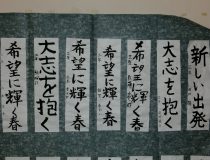 新しい出発
大志を抱く
希望に輝く春
希望に輝く春
希望に輝く春
大志を抱く
希望に輝く春